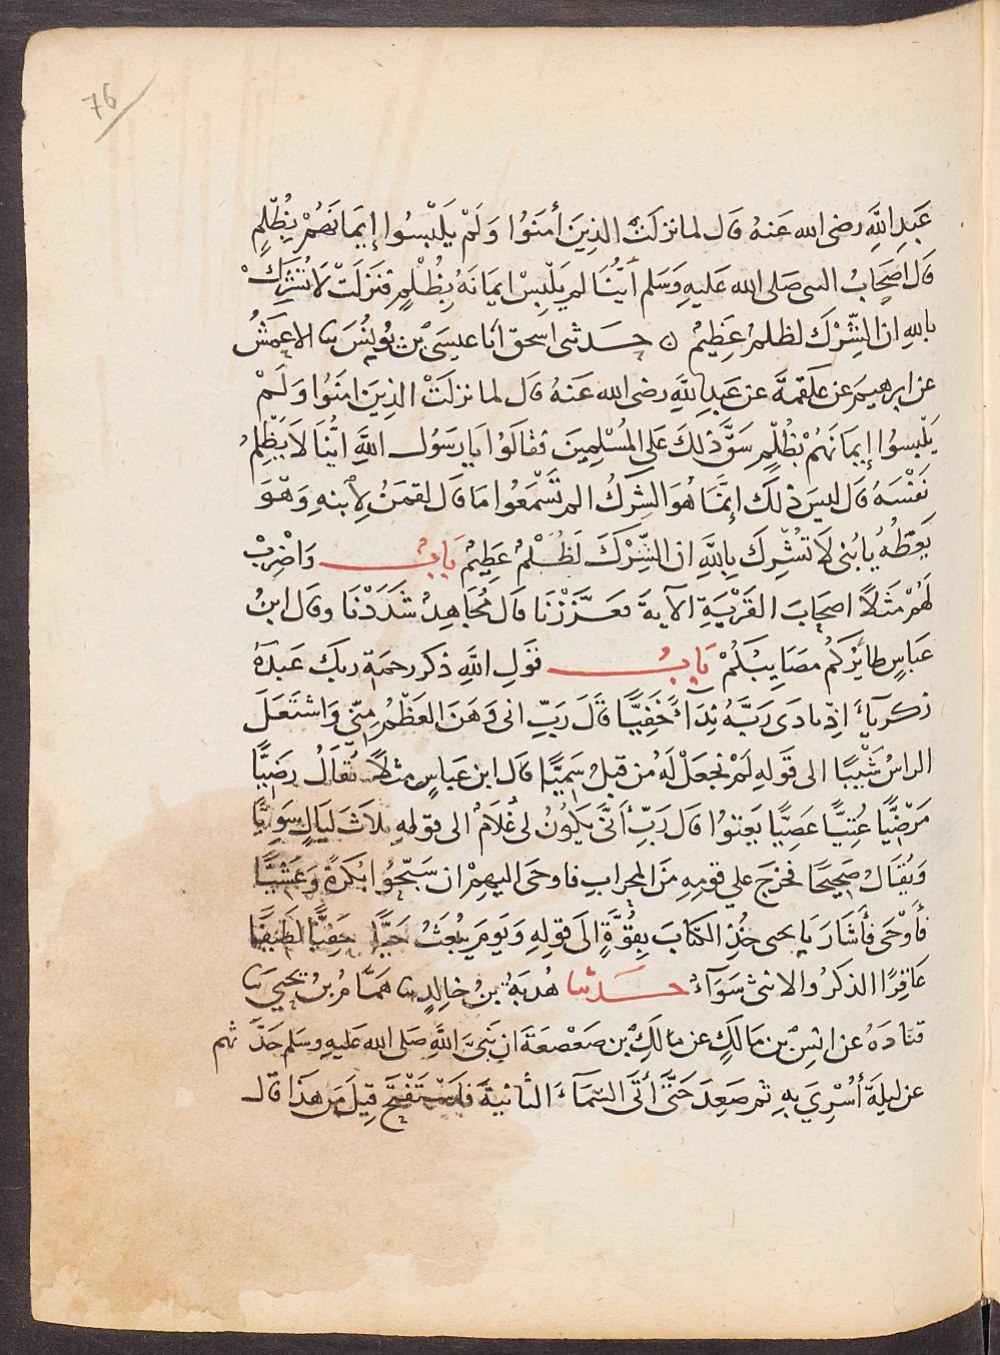 76
عَبدِ اللَّهِ رضى الله عَنهُ قَال لما نزلَتْ الذِينَ أمَنَوُا وَلَمْ يَلْبْسُوا إِيمَانَهُمْ بِظُلْمٍ
قَال اصحَابُ النبى صَلى الله عَليهِ وَسَلم أيُّنَا لم يَلْبِسْ ايمانَهُ بِظُلْمٍ فنَزلَتْ لاَ تُشْرِكْ
بالله ان الشِّرْكَ لظلمٌ عَظِيمٌ ٥ حَدثنى اسحق انا عيسَى بْن يُونُسَ نا الاعمَشُ
عن ابرهيمَ عن عَلقمَةَ عن عَبدِ اللَّهِ رضى الله عَنهُ قَال لما نزلَتْ الذِينَ امَنُوا وَلَمْ
يَلْبسوُا إِيمَانَهُمْ بْظُلْمٍ سَقَّ ذلكَ عَلى المُسْلِمِينَ فقالَوُا يا رسَوُل اللهِ ايُّنَا لاَ يَظْلِمُ
نَفْسَهُ قَال ليسَ ذلكَ إِنَّمَا هُوَ الشِرْكُ الم تَسْمَعُوا مَا قَال لقمَنُ لِابنهِ وَهْوَ
يَعِظُهُ يا بُنى لاَ تشْرِكَ باللَّهِ ان الشِّرْكَ لَظُلْمٌ عَظِيمٌ بَابٌ وَاضْرِبْ
لَهُمْ مَثَلاً اصحَابَ القَرْيَةِ الآيةَ فعَزَّزْنَا قَال مُجَاهِدٌ شَدَّدْنَا وقال ابنُ
عَباسٍ طايرُكمْ مصَايبُكُمْ بَابُ قوَلِ اللَّهِ ذكر رحمَة ربك عَبدَهُ
زكريآءَ اذ نادَى رَبَّهُ نِدَآءً خَفِيًّا قَالَ رَبِّ انى وَهَنَ العَظْمُ مِنِّى وَاشتَعَلَ
الراسُ شَيْبًا الى قَولهِ لَمْ نجعَلْ لَهُ من قبلُ سَمِيًّا قَال ابن عَباسٍ مثلاً يُقَالُ رضِيًّا
مَرْضِيًّا عُتِيًّا عَصِيًّا يَعتوُا قَال رَبِّ أنَّى يَكوُنُ لى غُلاَمٌ الى قولهِ ثلاَثَ لَيَالٍ سَوِيًّا
وَيُقَالُ صَحِيحًا فخرَج على قومِهِ مِنَ المحرابِ فاوحَى اليهِمْ ان سَبِّحُوا بُكرَةً وَعَشِيًّا
فَأَوْحَى فأشَارَ يَا يحيى خُذِ الكتَابَ بِقُوَّةٍ الَى قَولِهِ وَيَومَ يُبعَثُ حَيًّا حَفِيًّا لَطِيفًا
عَاقِرًا الذكَرُ والانثى سَوَآءٌ حَدثنا هُدبَةُ بنُ خالِدٍ نا هَمَّامُ بنُ يَحيَى نا
قتَادَهُ عن انَسِ بْن مَالَكٍ عن مالَكِ بْن صَعْصَعَةَ ان نَبىَّ اللَّهِ صَلى الله عَليهِ وسَلم حَدَّثهم
عن ليلَةَ أُسْرِيَ بهِ ثم صَعِدَ حَتَّى أتَى السَّمَاءَ الثَانيةَ فاسْتَفْتحَ قِيلَ مَن هَذَا قَال